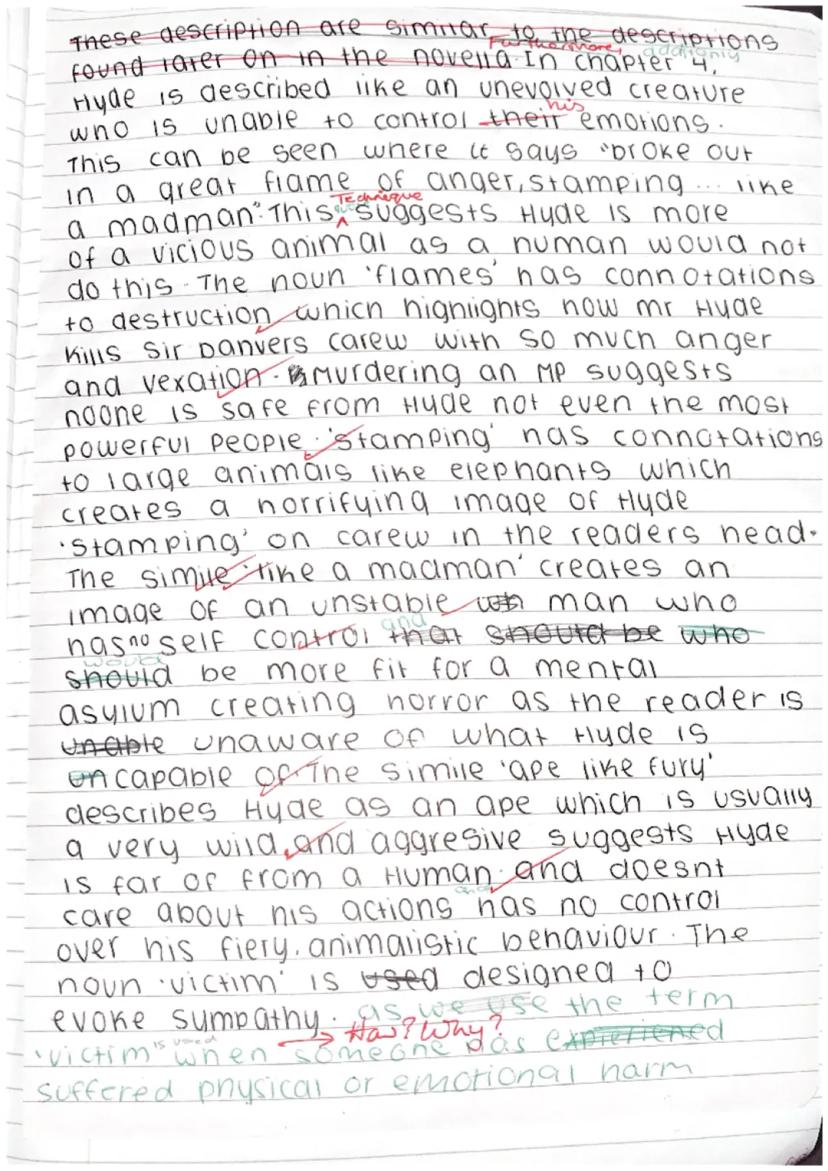 These description are similar to the descriptions
Furthermore, additionly
found later on in the novella. In chapter 4,
Hyde is described like an unevolved creature
his
who is unable to control their emotions.
This can be seen where it says "broke out
in a great flame of anger, stamping ... like
Technique
a madman". This suggests Hyde is more
of a vicious animal as a human would not
do this. The noun 'flames' has connotations
to destruction which highlights how mr Hyde
kills Sir Danvers Carew with so much anger
and vexation. Murdering an MP suggests
noone is safe from Hyde not even the most
powerful people. 'stamping' has connotations
to large animals like elephants which
creates a horrifying image of Hyde
'stamping' on carew in the readers head.
The simile 'like a madman' creates an
image of an unstable man who
and
has no self control that should be who
would
should be more fit for a mental
asylum creating horror as the reader is
unable unaware of what Hyde is
uncapable of. The simile 'ape like fury'
describes Hyde as an ape which is usually
a very wild and aggresive suggests Hyde
is far of from a Human and doesnt
and
care about his actions has no control
over his fiery, animalistic behaviour. The
noun 'victim' is used designed to
evoke sympathy. as we use the term
→ How? Why?
is used
'victim" when someone has experiened
suffered physical or emotional harm